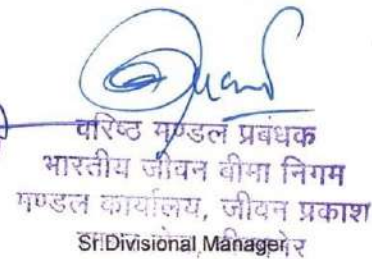 वरिष्ठ मण्डल प्रबंधक
भारतीय जीवन बीमा निगम
मण्डल कार्यालय, जीवन प्रकाश
Sr.Divisional Manager